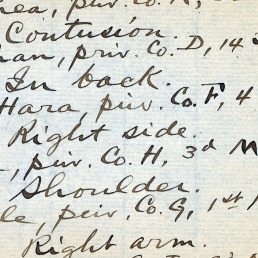 priv. Co. K,
Contusion.
priv. Co. D, 14
In back.
Hara, priv. Co. F, 4
Right side.
priv. Co. H, 3d M
Shoulder.
priv. Co. G, 1st
Right arm.